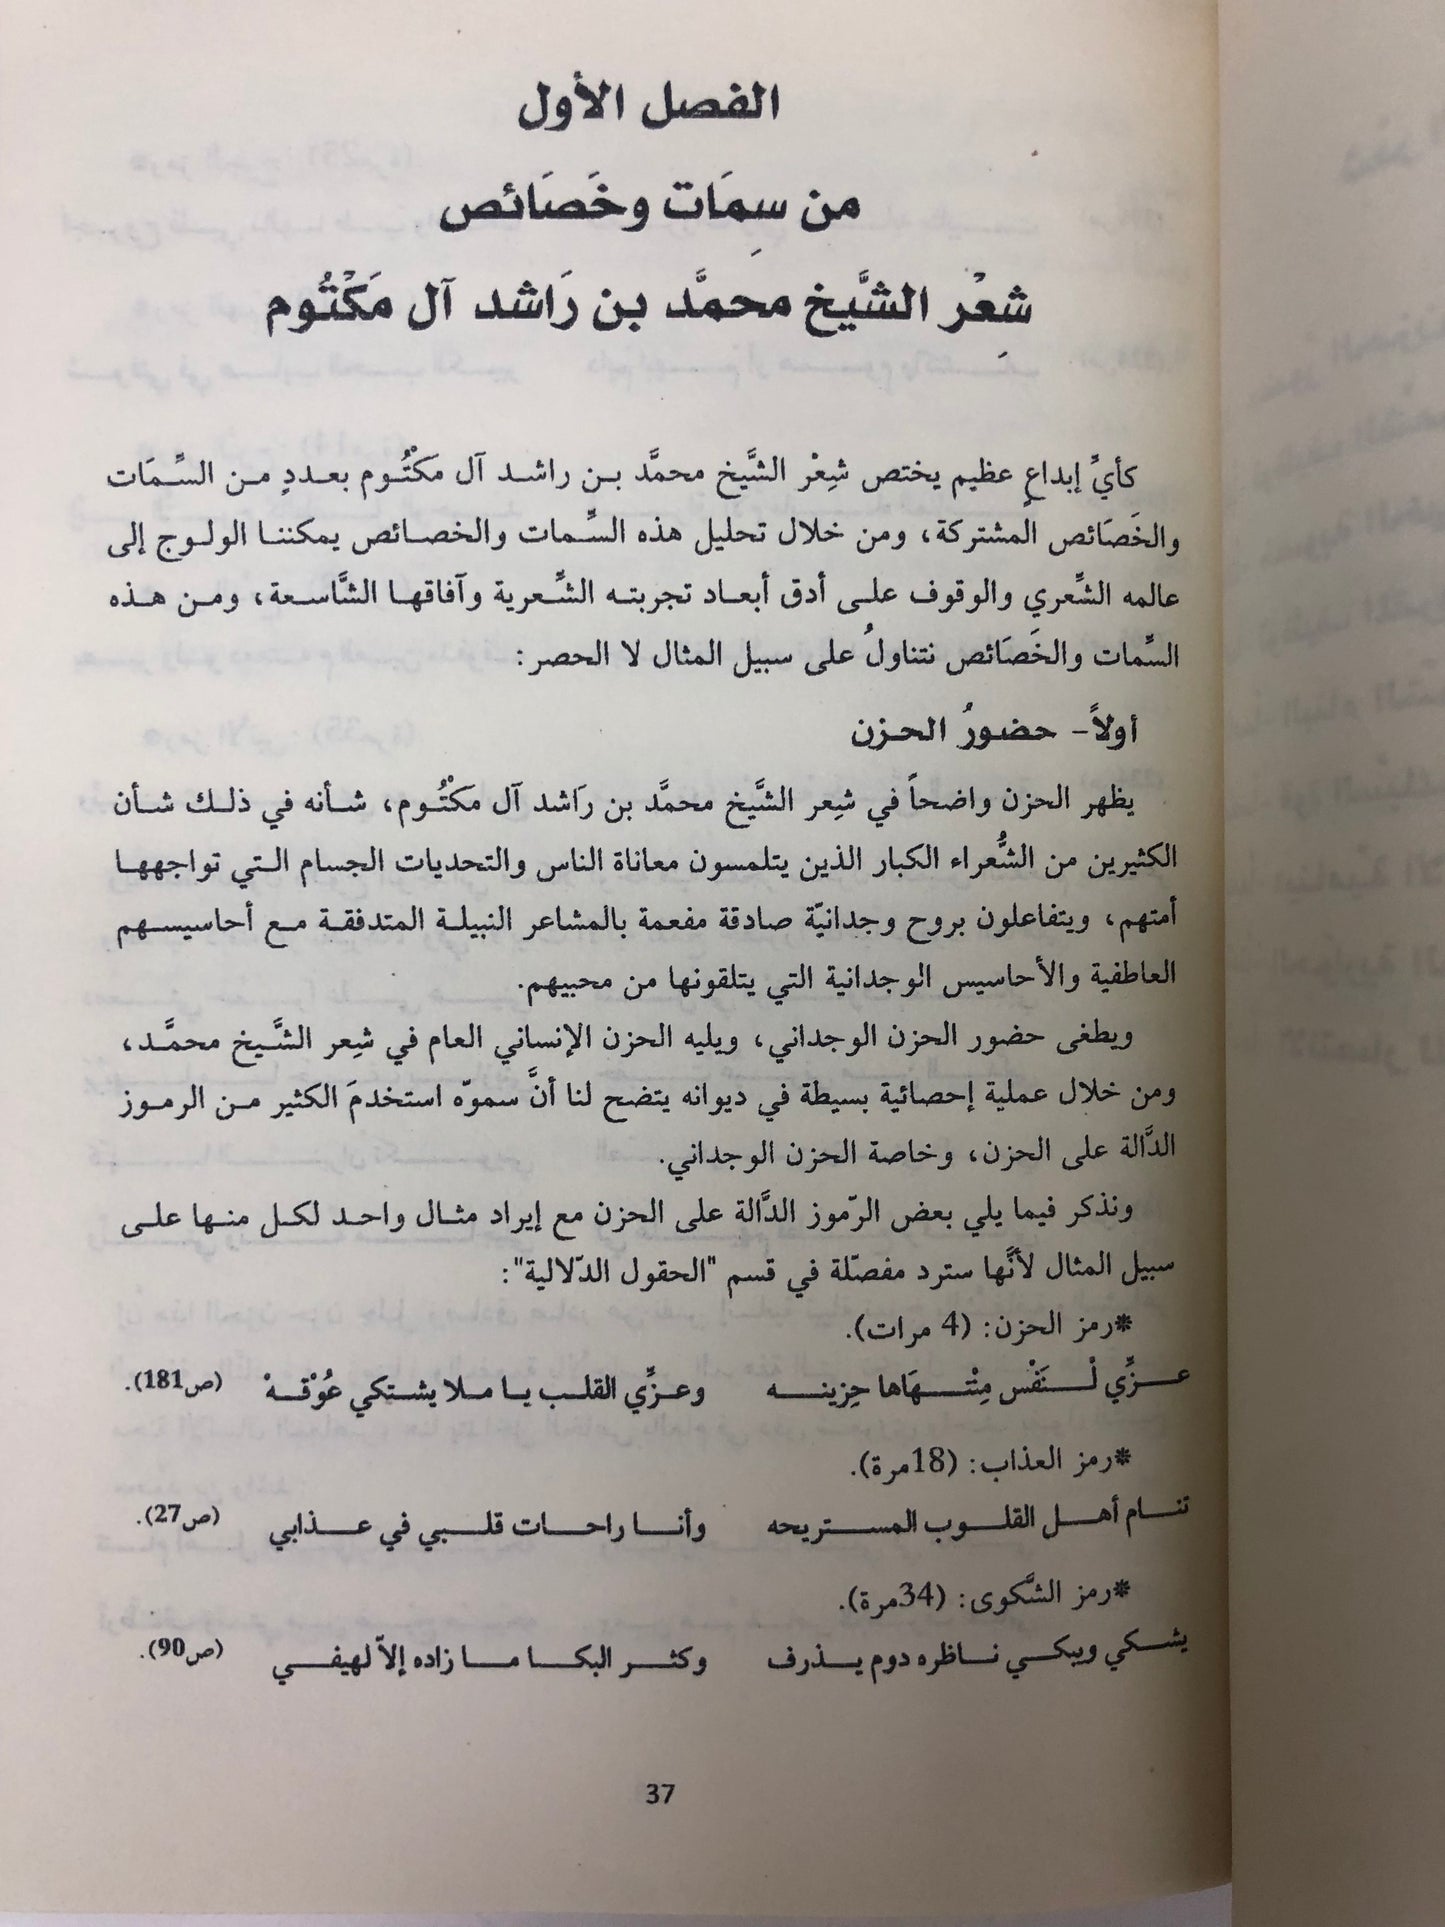 الفصل الأول
من سِمَات وخَصَائص
شِعْر الشَّيخ محمَّد بن رَاشد آل مَكْتُوم
كأيِّ إبداعٍ عظيم يختص شِعْر الشَّيخ محمَّد بن راشد آل مَكْتُوم بعددٍ من السِّمَات
والخَصَائص المشتركة، ومن خلال تحليل هذه السِّمات والخصائص يمكننا الولوج إلى
عالمه الشِّعري والوقوف على أدق أبعاد تجربته الشِّعرية وآفاقها الشَّاسعة، ومن هذه
السِّمات والخَصَائص نتناولُ على سبيل المثال لا الحصر:
أولاً- حضورُ الحزن
يظهر الحزن واضحاً في شِعر الشَّيخ محمَّد بن رَاشد آل مَكْتُوم، شأنه في ذلك شأن
الكثيرين من الشُّعراء الكبار الذين يتلمسون معاناة الناس والتحديات الجسام التي تواجهها
أمتهم، ويتفاعلون بروح وجدانيّة صادقة مفعمة بالمشاعر النبيلة المتدفقة مع أحاسيسهم
العاطفية والأحاسيس الوجدانية التي يتلقونها من محبيهم.
ويطغى حضور الحزن الوجداني، ويليه الحزن الإنساني العام في شِعر الشَّيخ محمَّد،
ومن خلال عملية إحصائية بسيطة في ديوانه يتضح لنا أنَّ سموّه استخدمَ الكثير من الرموز
الدَّالة على الحزن، وخاصة الحزن الوجداني.
ونذكر فيما يلي بعض الرّموز الدَّالة على الحزن مع إيراد مثال واحد لكل منها على
سبيل المثال لأنَّها سترد مفصّلة في قسم "الحقول الدّلالية":
*رمز الحزن: (4 مرات).
عزِّي لْنَفْس مِنْتهَاها حِزينه وعزِّي القلب يا ملا يشتكي عُوْقهْ (ص181).
*رمز العذاب: (18مرة).
تنام أهل القلوب المستريحه وأنا راحات قلبي في عذابي (ص27).
*رمز الشَّكوى: (34مرة).
يشكي ويبكي ناظره دوم يذرف وكثر البكا ما زاده إلاّ لهيفي (ص90).
37